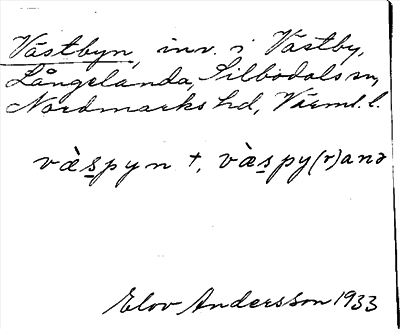 Västbyn, inv. i Västby,
Långelanda, Silbodals sn,
Nordmarks hd, Värml. l.
væ̀s̲pyn +, væ̀s̲py(r)anə
Elov Andersson 1933